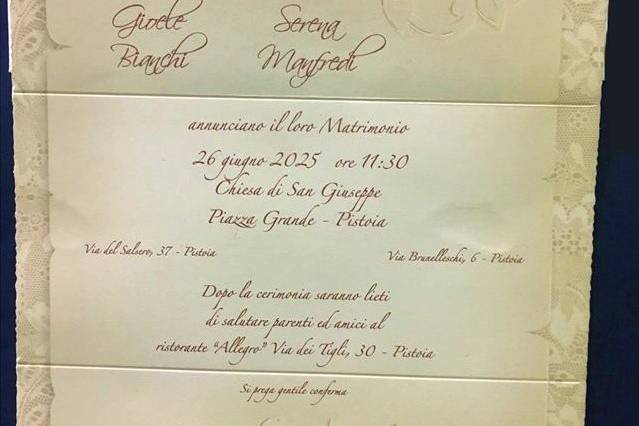 Gioele Serena
Bianchi Manfredi
annunciano il loro Matrimonio
26 giugno 2025 ore 11:30
Chiesa di San Giuseppe
Piazza Grande - Pistoia
Via del Salsero, 37 - Pistoia Via Brunelleschi, 6 - Pistoia
Dopo la cerimonia saranno lieti
di salutare parenti ed amici al
ristorante “Allegro” Via dei Tigli, 30 - Pistoia
Si prega gentile conferma